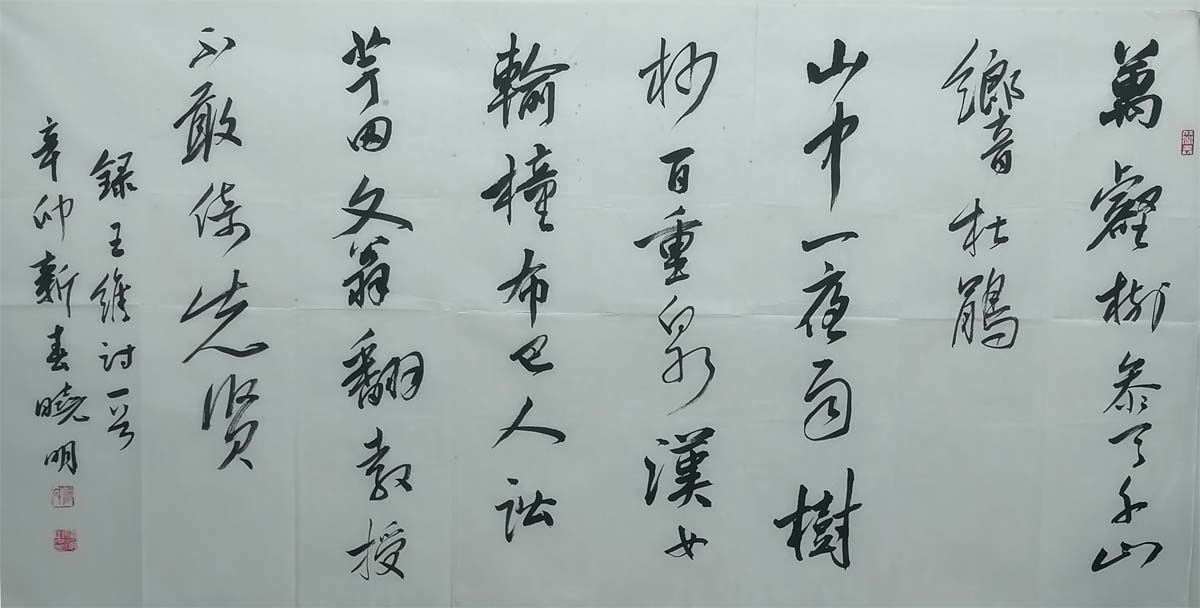 萬壑樹參天千山
響杜鵑
山中一夜雨樹
杪百重泉漢女
輸橦布巴人訟
芋田文翁翻教授
不敢倚先賢
録王維詩一首
辛卯新春曉明